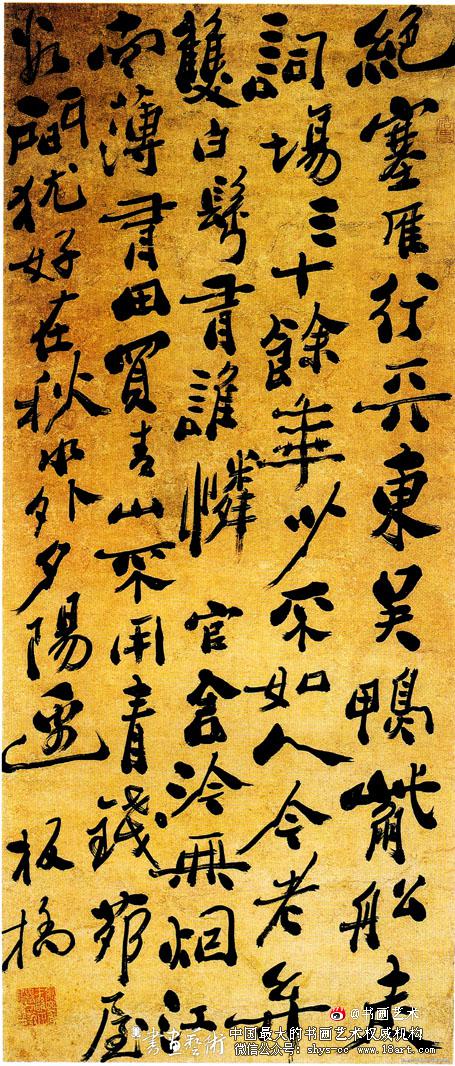 絕塞雁行天東吳鴨觜船走
詞場三十餘年少不如人今老矣
雙白鬢有誰憐官舍冷無烟江
南薄有田買青山不用青錢茆屋
數間猶好在秋水外夕陽邊
板橋
@书画艺术
書畫藝術 中国最大的书画艺术权威机构
微信公众号：shys-cc www.18art.com